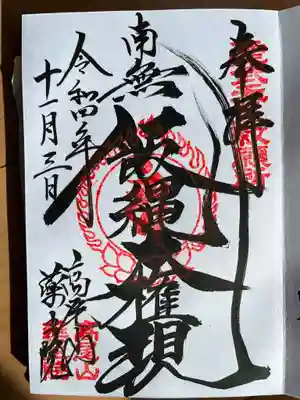 奉拝
南無
飯縄大権現
令和四年
十一月三日
高尾山
薬王院